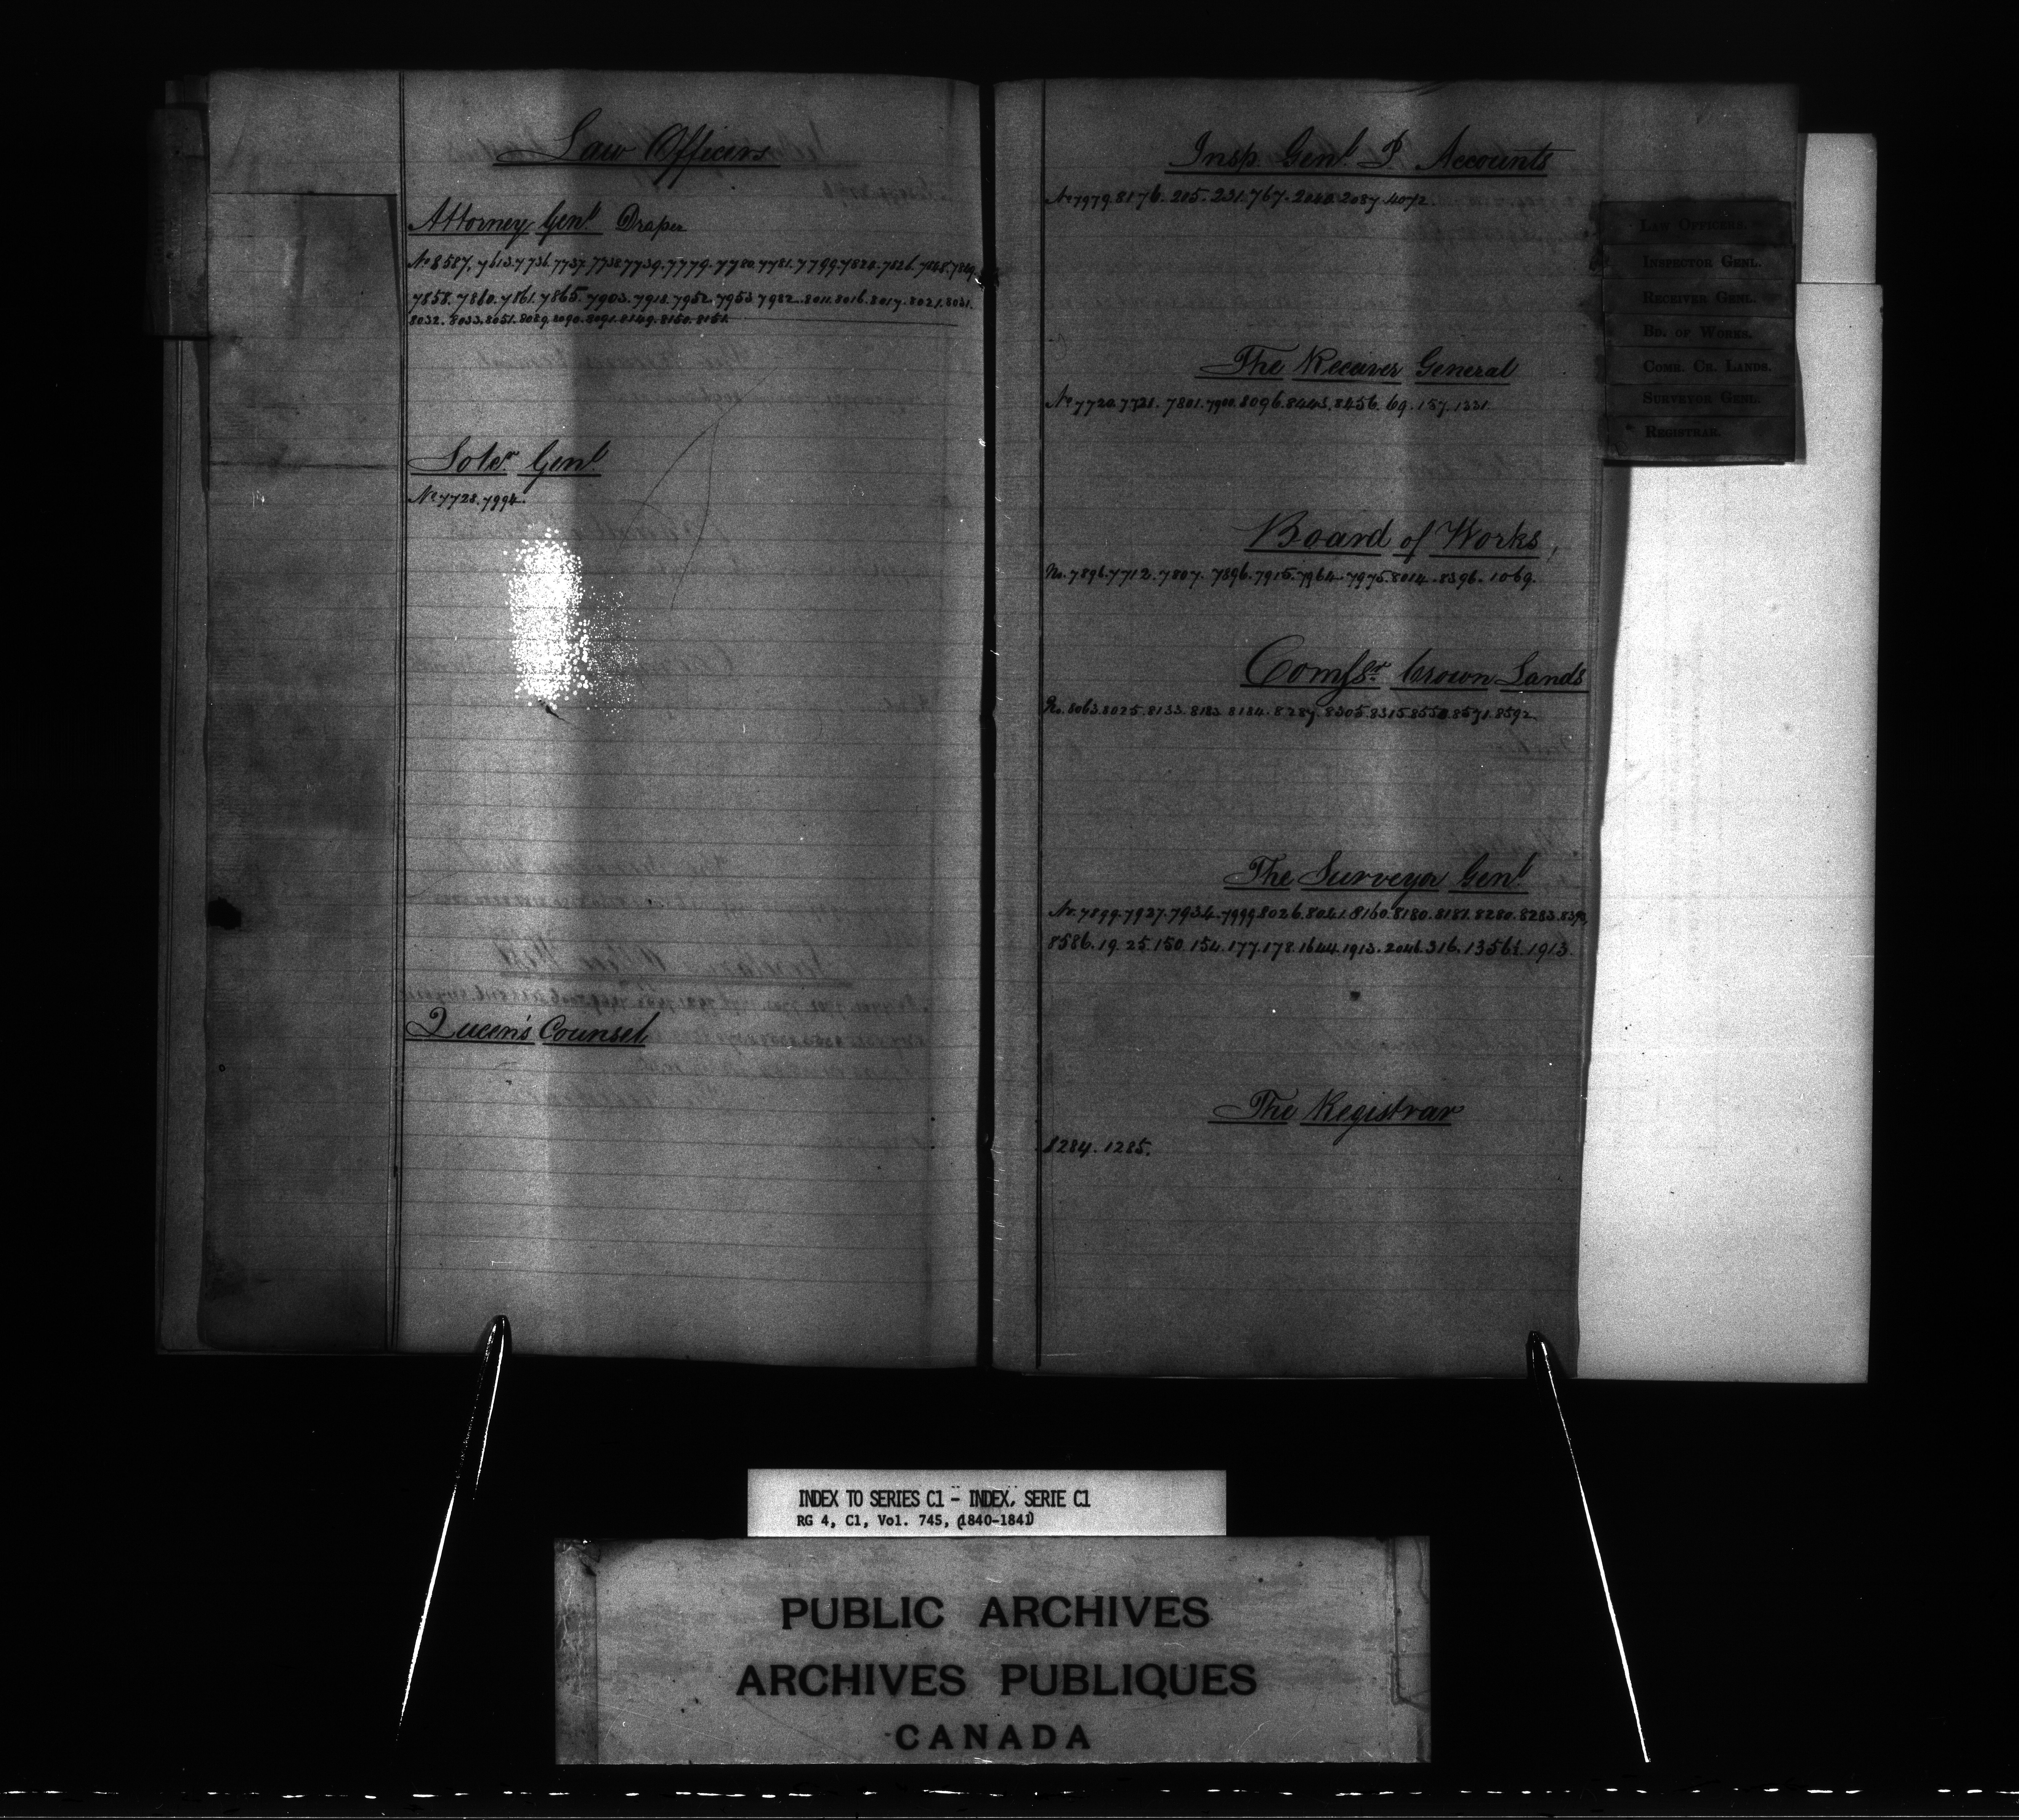 Law Officers
Attorney Genl Draper
No 8587. 7613. 7736. 7737. 7738. 7739. 7779. 7780. 7781. 7799. 7820. 7826. 7848. 7849.
7858. 7860. 7861. 7865. 7903. 7918. 7952. 7953. 7982. 8011. 8016. 8017. 8021. 8031.
8032. 8033. 8051. 8089. 8090. 8091. 8149. 8150. 8151.
Soler Genl
No 7728. 7994.
Queen's Counsel
Insp Genl P. Accounts
No 7979. 8176. 205. 231. 767. 2040. 2087. 4072.
The Receiver General
No 7720. 7721. 7801. 7900. 8096. 8443. 8456. 69. 157. 1331.
Board of Works,
No. 7896. 7712. 7807. 7896. 7915. 7964. 7975. 8014. 8396. 1069.
Comssr Crown Lands
No. 8063. 8025. 8133. 8183. 8184. 8287. 8305. 8315. 8550. 8571. 8592
The Surveyor Genl
No. 7899. 7927. 7934. 7999. 8026. 8041. 8160. 8180. 8181. 8280. 8283. 8390.
8586. 19. 25. 150. 154. 177. 178. 1644. 1913. 2046. 316. 1356½. 1913.
The Registrar
8284. 1285.
LAW OFFICERS.
INSPECTOR GENL.
RECEIVER GENL.
BD. OF WORKS.
COMR. CR. LANDS.
SURVEYOR GENL.
REGISTRAR.
INDEX TO SERIES C1 - INDEX, SERIE C1
RG 4, C1, Vol. 745, (1840-1841)
PUBLIC ARCHIVES
ARCHIVES PUBLIQUES
CANADA